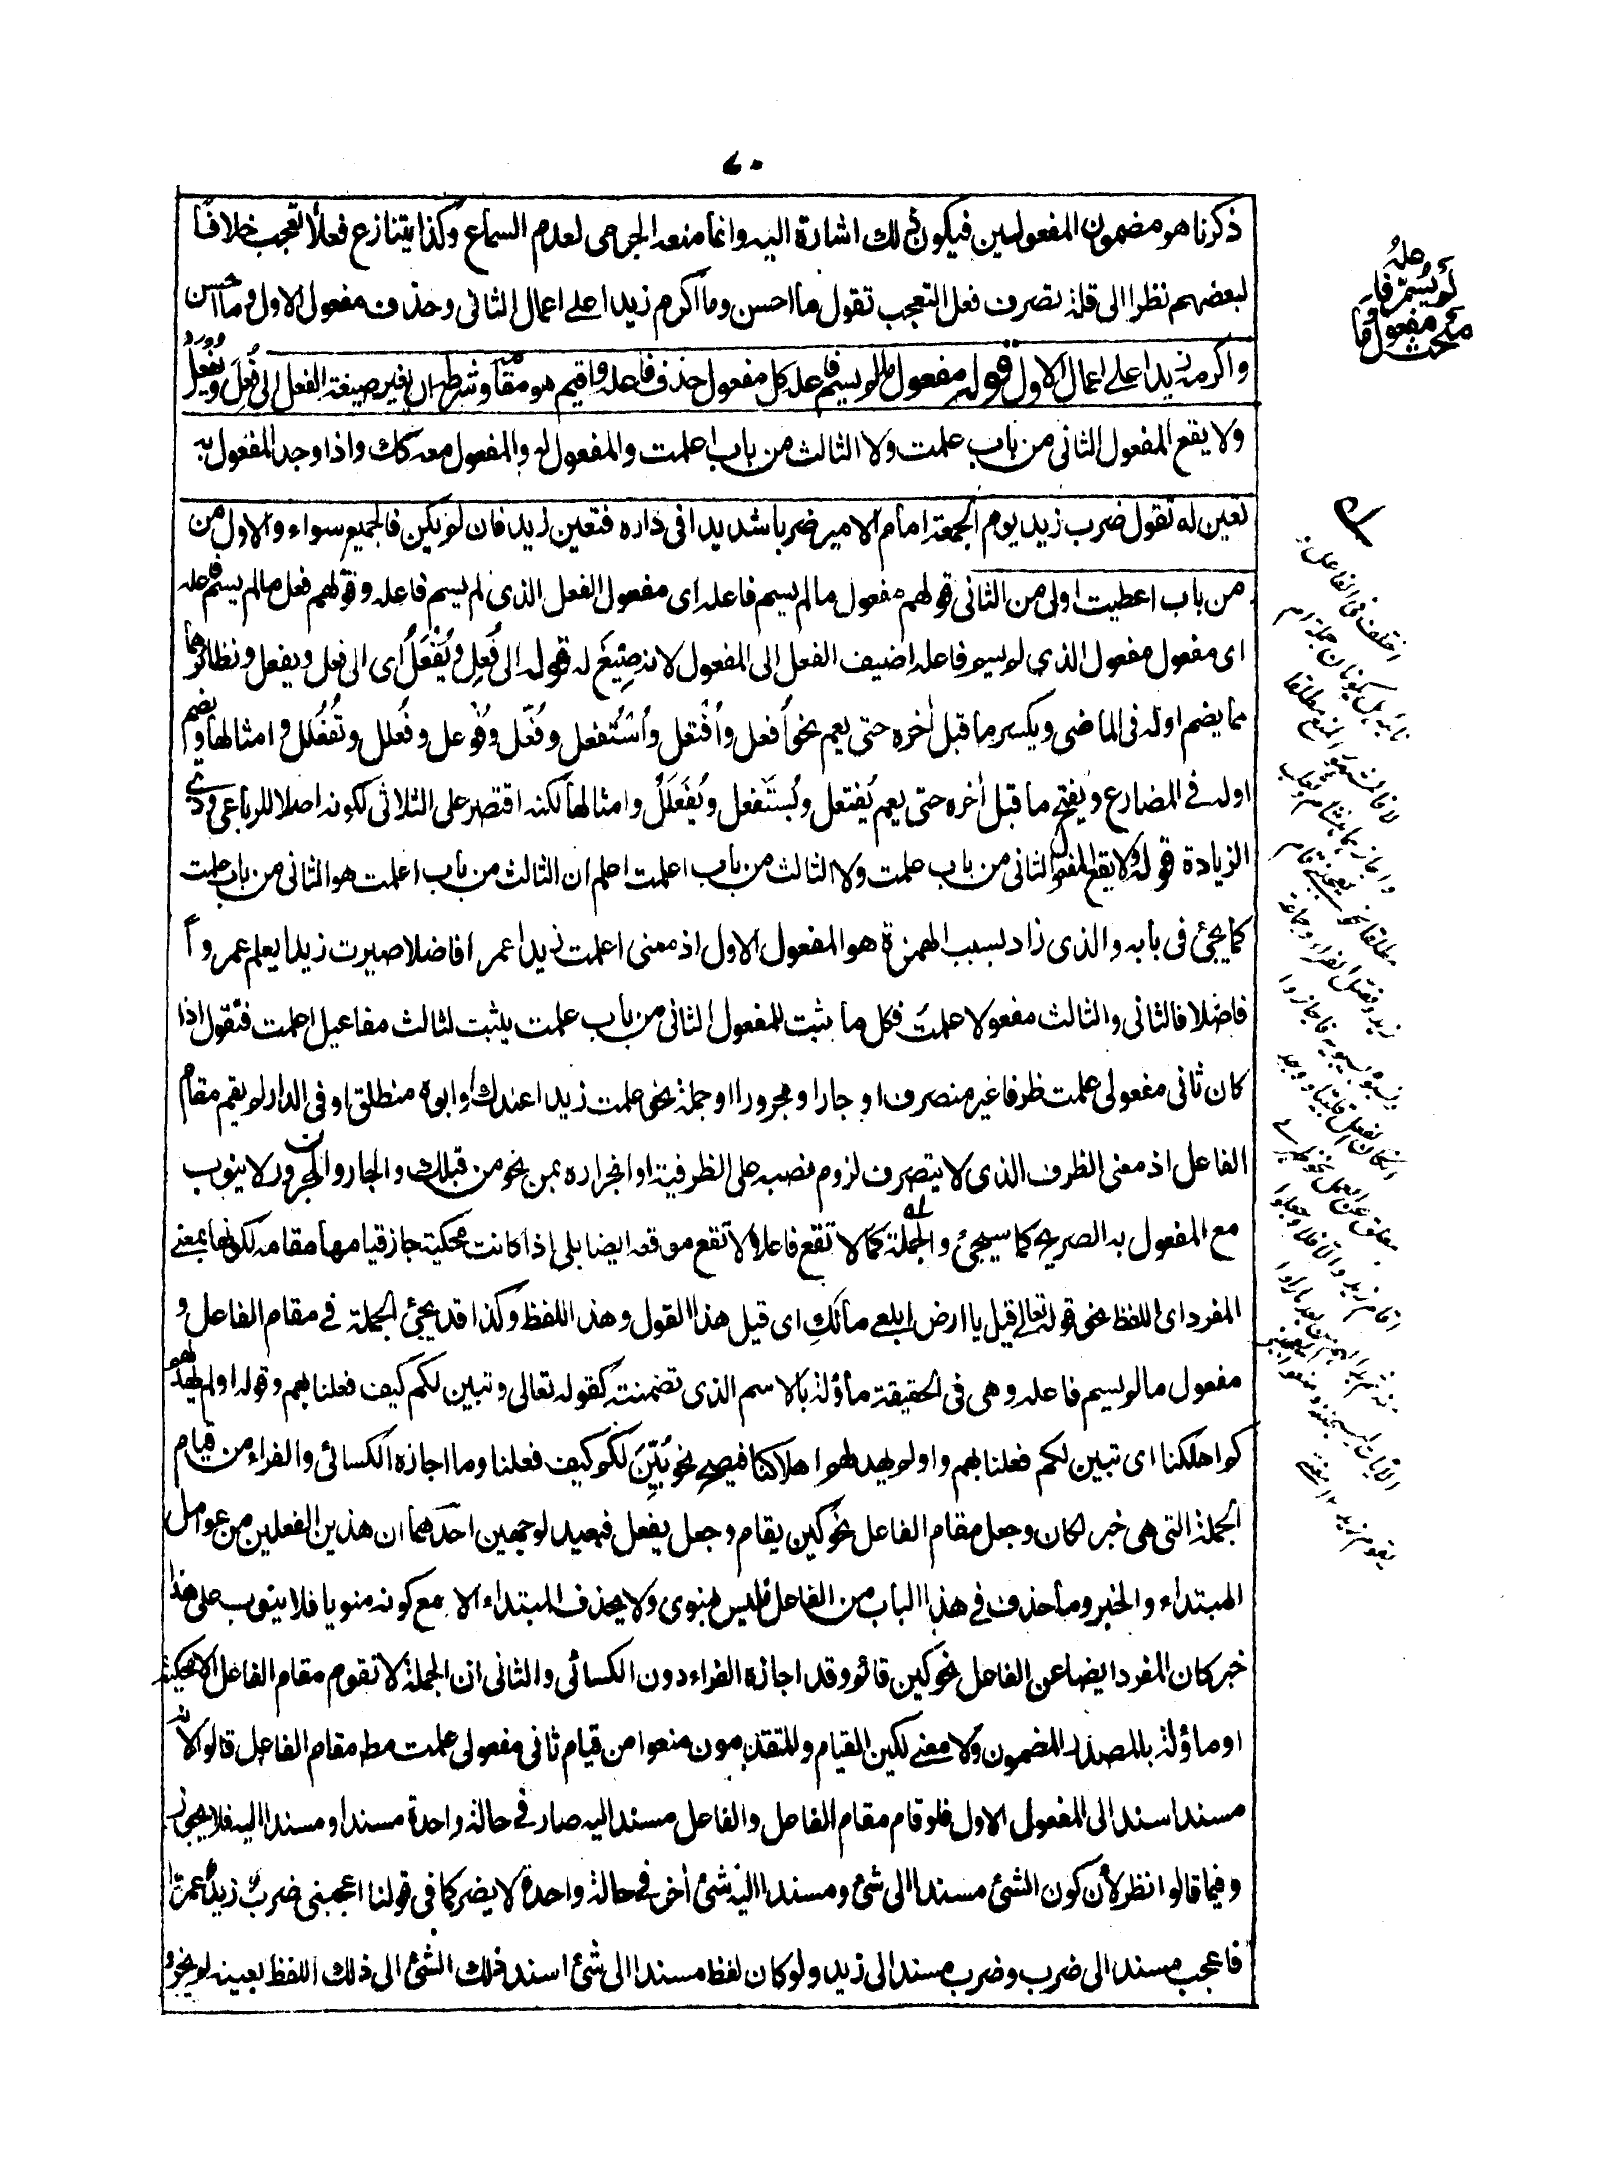 ٧٠
ذكرنا هو مضمون المفعولين فيكون ذلك اشارة اليه وانما منعه الجرمى لعدم السماع وكذا يتنازع فعلا تعجب خلافا
لبعضهم نظرا الى قلة تصرف فعل التعجب تقول ما احسن وما اكرم زيدا على اعمال الثانى وحذف مفعول الاول وما احسن
واكرمه زيدا على اعمال الاول قوله مفعول ما لم يسم فاعله كل مفعول حذف فاعله واقيم هو مقامه وشرطه ان تغير صيغة الفعل الى فُعِلَ ويُفعَلُ
ولا يقع المفعول الثانى من باب علمت ولا الثالث من باب اعلمت والمفعول له والمفعول معه كك واذا وجد المفعول به
تعين له تقول ضرب زيد يوم الجمعة امام الامير ضربا شديدا فى داره فتعين زيد فان لم يكن فالجميع سواء والاول من
من باب اعطيت اولى من الثانى قولهم مفعول ما لم يسم فاعله اى مفعول الفعل الذى لم يسم فاعله وقولهم فعل ما لم يسم فاعله
اى مفعول مفعول الذى لم يسم فاعله اضيف الفعل الى المفعول لانه صِيْغَ له قوله الى فُعِلَ ويُفْعَلُ اى الى فعل ويفعل ونظائرهما
مما يضم اوله فى الماضى ويكسر ما قبل اٰخره حتى يعم نحو اُفعل واُفْتعل واُسْتُفعل وفُعّل وفُوْعل وفُعلل وتُفُعلل وامثالها ويضم
اوله فى المضارع ويفتح ما قبل اٰخره حتى يعم يُفتعل ويُستَفعل ويُفَعلَلُ وامثالها لكنه اقتصر على الثلاثى لكونه اصلا للرباعى وذى
الزيادة قوله ولا يقع المفعول الثانى من باب علمت ولا الثالث من باب اعلمت اعلم ان الثالث من باب اعلمت هو الثانى من باب علمت
كما يجئ فى بابه والذى زاد بسبب الهمزة هو المفعول الاول اذ معنى اعلمت زيدا عمرا فاضلا صيرت زيدا يعلم عمروا
فاضلا فالثانى والثالث مفعولا علمت فكل ما يثبت للمفعول الثانى من باب علمت يثبت لثالث مفاعيل اعلمت فنقول اذا
كان ثانى مفعولى علمت ظرفا غير منصرف او جارا ومجرورا او جملة نحو علمت زيدا عندك او ابوه منطلق او فى الدار لم يقم مقام
الفاعل اذ معنى الظرف الذى لا يتصرف لزوم نصبه على الظرفية او انجراره بمن نحو من قبلك والجار والمجرور لا ينوب
مع المفعول به الصريح كما سيجئ والجملة كما لا تقع فاعلا لا تقع موقعه ايضا بلى اذا كانت محكية جاز قيامها مقامه لكونها بمعنى
المفرد اى اللفظ نحو قوله تعالى قيل يا ارض ابلعى مائكِ اى قيل هذا القول وهذا اللفظ وكذا قد يجئ الجملة فى مقام الفاعل و
مفعول ما لم يسم فاعله وهى فى الحقيقة مأوّلة بالاسم الذى تضمنته كقوله تعالى وتبين لكم كيف فعلنا بهم وقوله اولم يهد لهم
كم اهلكنا اى تبين لكم فعلنا بهم واولم يهد لهم اهلاكنا فيصح نحو بُيِّنَ لكم كيف فعلنا وما اجازه الكسائى والفراء من قيام
الجملة التى هى خبر لكان وجعل مقام الفاعل نحو كين يقام وجعل يفعل فبعيد لوجهين احدهما ان هذين الفعلين من عوامل
المبتداء والخبر وما حذف فى هذا الباب من الفاعل فليس بمنوى ولا يحذف المبتداء الا مع كونه منويا فلا ينوب على هذا
خبر كان المفرد ايضا عن الفاعل نحو كين قائم وقد اجازه الفراء دون الكسائى والثانى ان الجملة لا تقوم مقام الفاعل الا محكية
او مأوّلة بالمصدر المضمون ولا معنى لكين القيام والمتقدمون منعوا من قيام ثانى مفعولى علمت مطه مقام الفاعل قالوا لانه
مسند اسند الى المفعول الاول فلو قام مقام الفاعل والفاعل مسند اليه صار فى حالة واحدة مسندا ومسندا اليه فلا يجوز
وفيما قالوا نظر لأن كون الشئ مسندا الى شئ ومسندا اليه شئ اٰخر فى حالة واحدة لا يضر كما فى قولنا اعجبنى ضربُ زيدٍ عمرا
فاعجب مسند الى ضرب وضرب مسند الى زيد ولو كان لفظ مسندا الى شئ اسند ذلك الشئ الى ذلك اللفظ بعينه لم يجز و